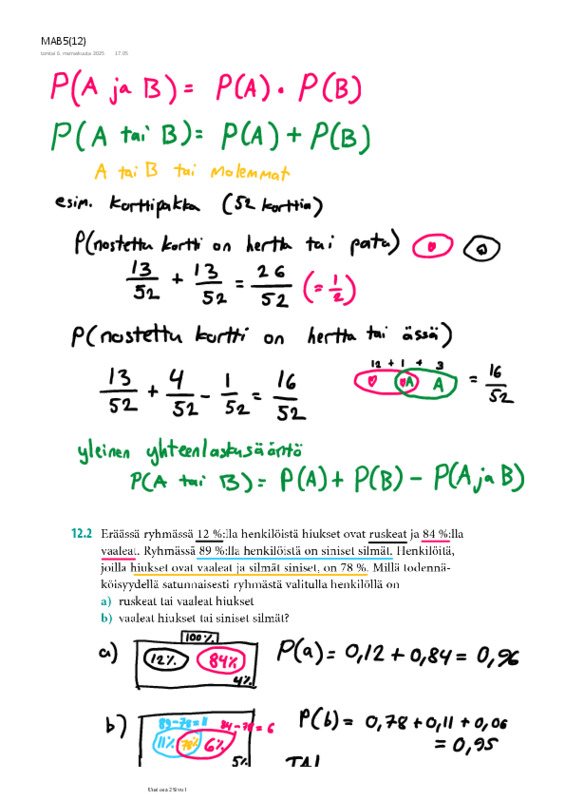 MAB5(12)
torstai 6. marraskuuta 2025 17.05
P(A ja B) = P(A) · P(B)
P(A tai B) = P(A) + P(B)
A tai B tai molemmat
esim. korttipakka (52 korttia)
P(nostettu kortti on hertta tai pata)
13/52 + 13/52 = 26/52 (= 1/2)
P(nostettu kortti on hertta tai ässä)
12 + 1 + 3
13/52 + 4/52 - 1/52 = 16/52
♥ ♥A A = 16/52
yleinen yhteenlaskusääntö
P(A tai B) = P(A) + P(B) - P(A ja B)
12.2 Eräässä ryhmässä 12 %:lla henkilöistä hiukset ovat ruskeat ja 84 %:lla
vaaleat. Ryhmässä 89 %:lla henkilöistä on siniset silmät. Henkilöitä,
joilla hiukset ovat vaaleat ja silmät siniset, on 78 %. Millä todennä-
köisyydellä satunnaisesti ryhmästä valitulla henkilöllä on
a) ruskeat tai vaaleat hiukset
b) vaaleat hiukset tai siniset silmät?
100%
a) 12% 84% 4% P(a) = 0,12 + 0,84 = 0,96
89-78=11 84-78=6
b) 11% 78% 6% P(b) = 0,78 + 0,11 + 0,06
= 0,95
5% TAI